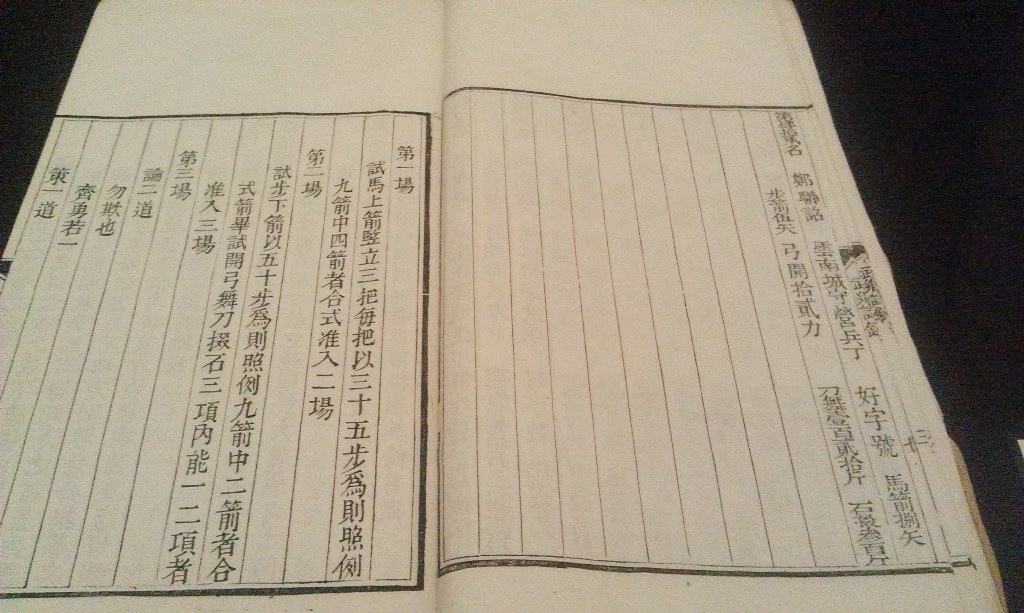 名 鄭聯詔 雲南城守營兵丁 好字號 馬箭捌矢
步箭伍矢 弓開拾貳力 刀舞壹百貳拾斤 石掇叁百斤
第一場
試馬上箭竪立三把每把以三十五步爲則照例
九箭中四箭者合式准入二場
第二場
試步下箭以五十步爲則照例九箭中二箭者合
式箭畢試開弓舞刀掇石三項內能一二項者
准入三場
第三場
論二道
勿欺也
齊勇若一
策一道